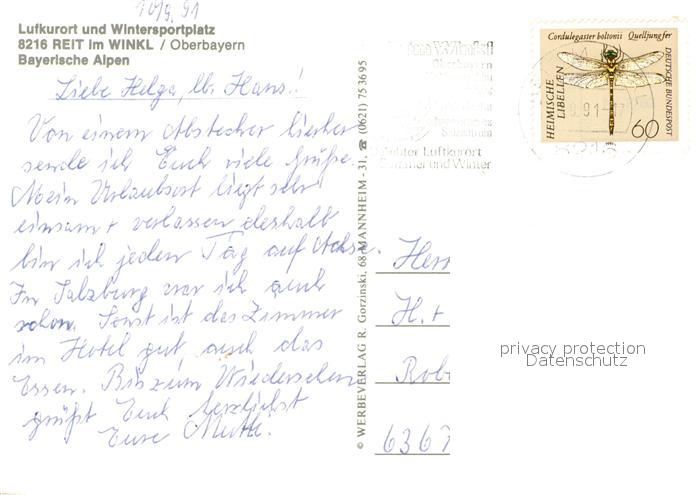 10/9. 91
Luftkurort und Wintersportplatz
8216 REIT im WINKL / Oberbayern
Bayerische Alpen
Liebe Helga, lb. Hans!
Von einem Abstecher hierher
sende ich Euch viele Grüße.
Mein Urlaubsort liegt sehr
einsam + verlassen deshalb
bin ich jeden Tag auf Achse.
In Salzburg war ich auch
schon. Sonst ist das Zimmer
im Hotel gut auch das
Essen. Bis zum Wiedersehen
grüßt Euch herzlichst
Eure
© WERBEVERLAG R. Gorzinski, 68 MANNHEIM - 31, ☎ (0621) 753695
Reit im Winkl
Oberbayern
Luftkurort
Sommer und Winter
Cordulegaster boltonii Quelljungfer
HEIMISCHE
LIBELLEN
DEUTSCHE BUNDESPOST
60
1991
.91-17
8216
H. +
Rob
6367
privacy protection
Datenschutz